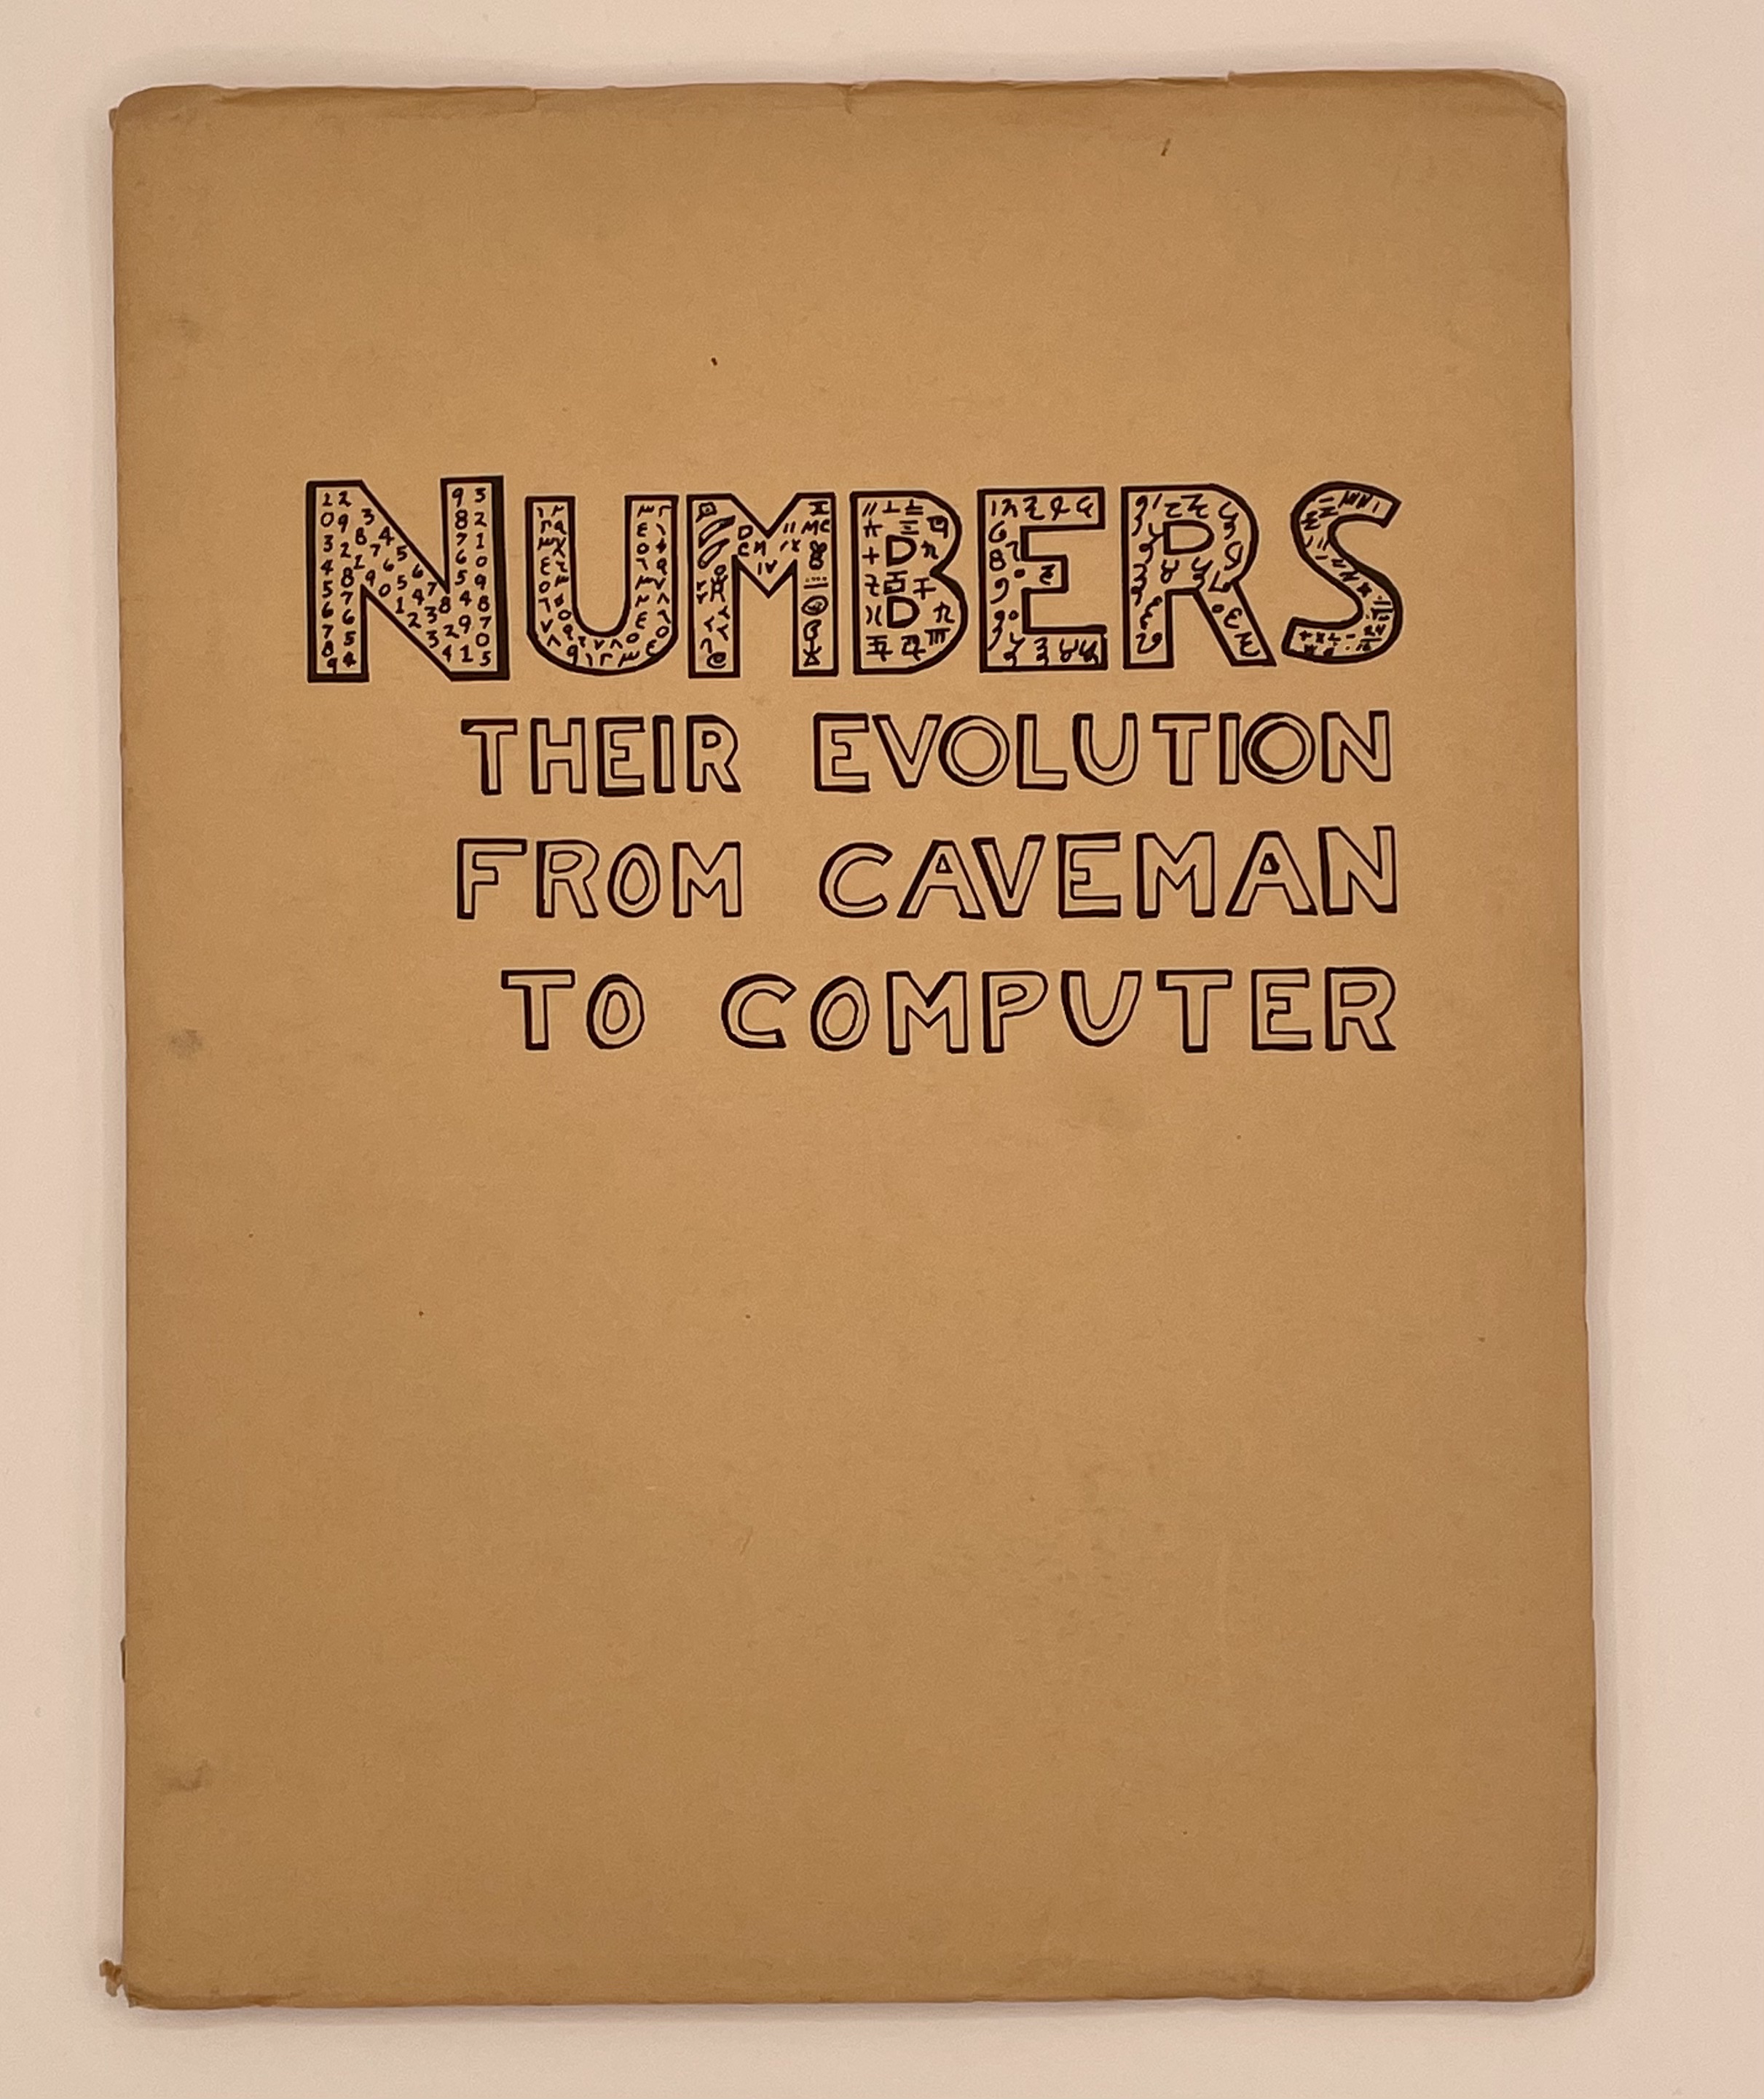 NUMBERS
THEIR EVOLUTION
FROM CAVEMAN
TO COMPUTER